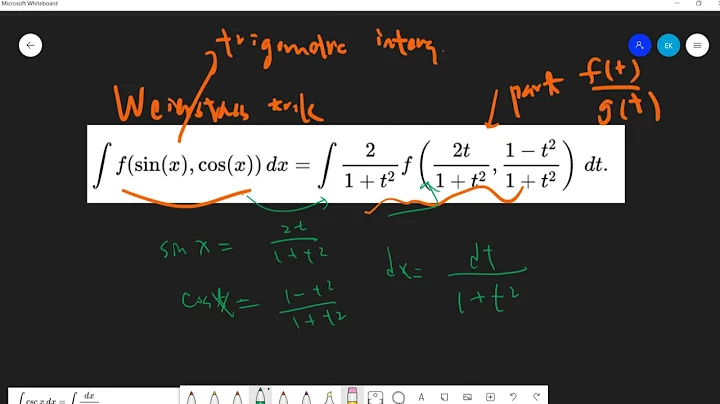 Microsoft Whiteboard
trigomdrc interg.
Weirstrass trik
part f(t)/g(t)
EK
∫ f(sin(x), cos(x)) dx = ∫ 2/(1 + t²) f(2t/(1 + t²), (1 − t²)/(1 + t²)) dt.
sin x = 2t/(1+t²)
dx = dt/(1+t²)
cos x = (1-t²)/(1+t²)
∫ csc x dx = ∫ dx